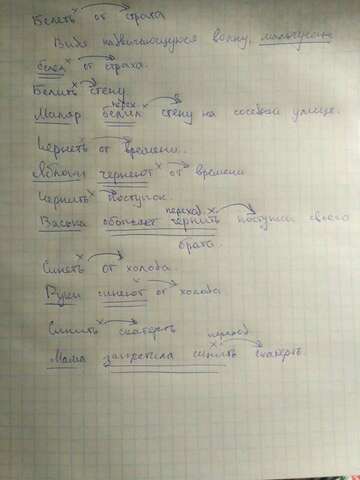 Белеть от страха
Видя надвигающуюся волну, мальчуган
белел от страха.
Белить стену.
перех
Маляр белил стену на соседней улице.
Чернеть от времени.
Яблоки чернеют от времени
Чернить поступок.
переход.
Васька обожает чернить поступки своего
брата.
Синеть от холода.
Руки синеют от холода
Синить скатерть
переход
Мама запретила синить скатерть.